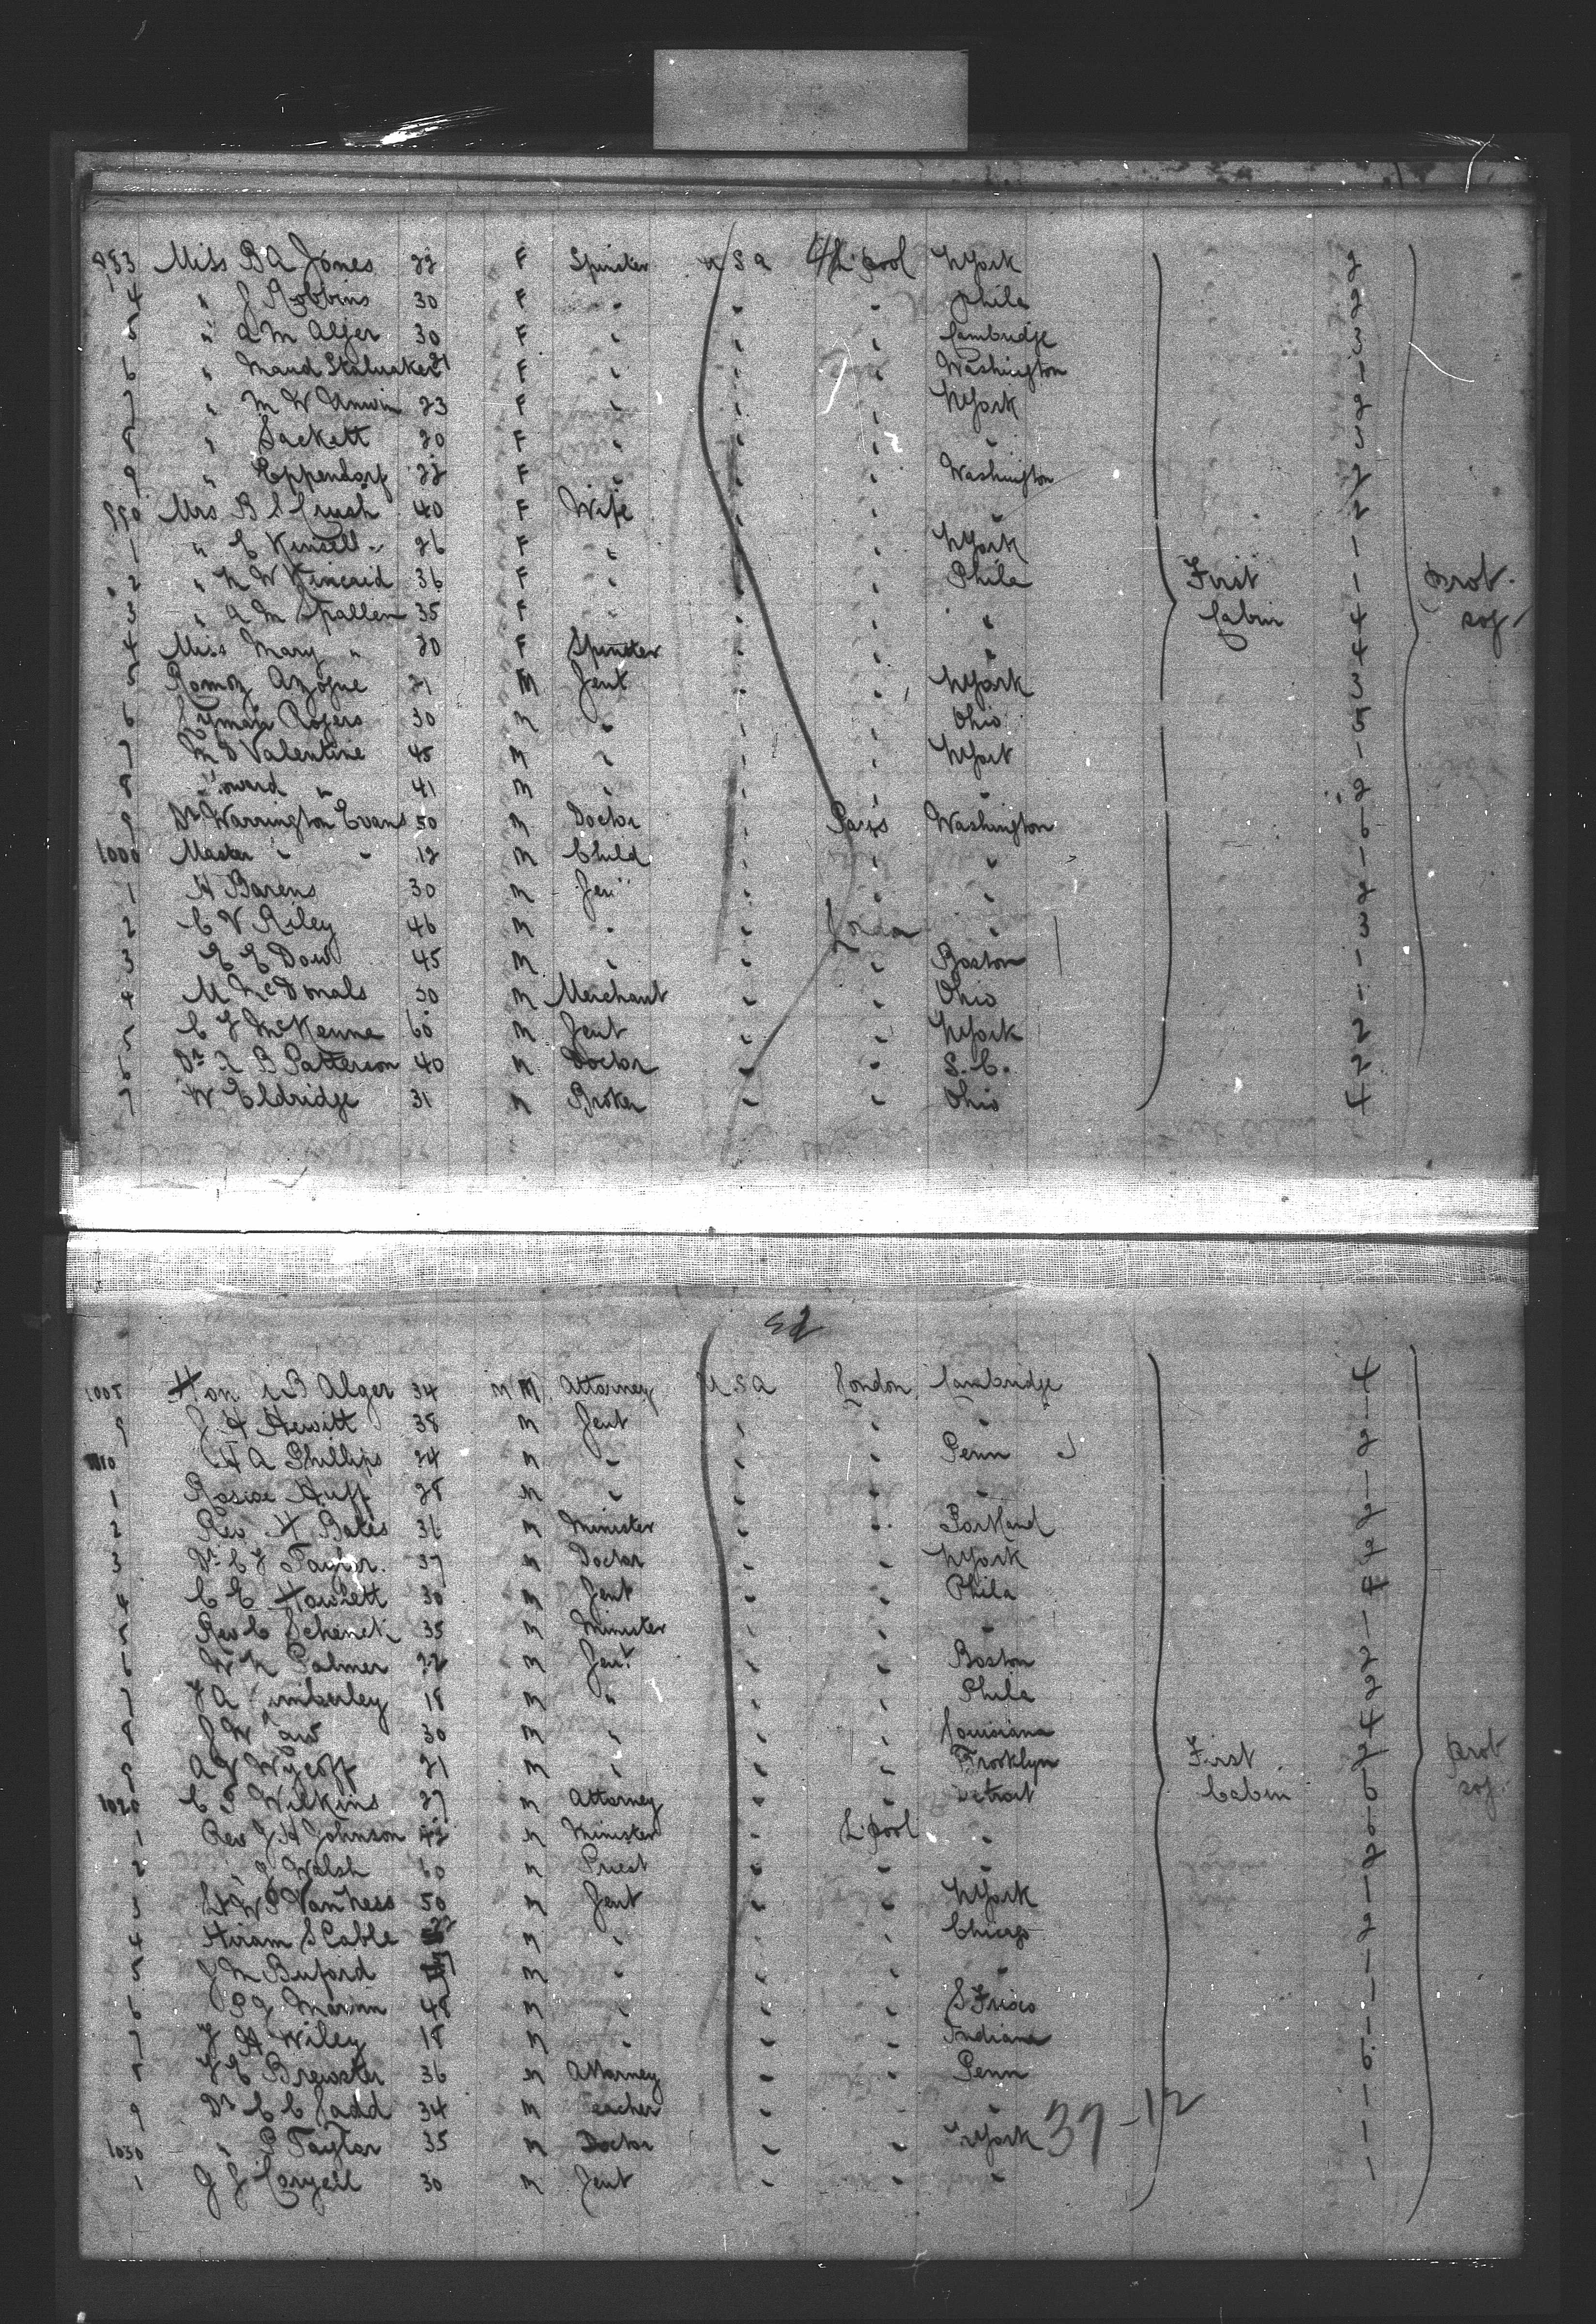 983 Miss B A Jones 22 F Spinster U S A L'pool N York 2
4 " J Robbins 30 F " " " Phila 2
5 " A M Alger 30 F " " " Cambridge 3
6 " Maud Stalnaker 21 F " " " Washington 1
7 " M W Unwin 23 F " " " N York 2
8 " Sackett 20 F " " " " 3
9 " Eppendorf 22 F " " " Washington 2
990 Mrs B S Crush 40 F Wife " " " 2
1 " E Kinsell 26 F " " " N York 1
2 " N W Kincaid 36 F " " " Phila First 1 prot.
3 " A M Spallen 35 F " " " " Cabin 4 soj.
4 Miss Mary " 20 F Spinster " " " 4
5 Ramon Azogue 21 M Gent " " N York 3
6 Lyman Rogers 30 M " " " Ohio 5
7 M D Valentine 45 M " " " N York 1
8 Howard " 41 M " " " " 2
9 Dr Warrington Evans 50 M Doctor " Paris Washington 6
1000 Master " " 12 M Child " " " 1
1 H Barens 30 M Gent " " " 2
2 C V Riley 46 M " " London " 3
3 E E Dow 45 M " " " Boston 1
4 M McDonals 30 M Merchant " " Ohio 1
5 C J McKenna 60 M Gent " " N York 2
6 Dr B Patterson 40 M Doctor " " S. C. 2
7 W Eldridge 31 M Broker " " Ohio 4
1008 Hon Alger 34 M M Attorney U S A London Cambridge 4
9 J H Hewitt 38 M Gent " " " 1
1010 H A Phillips 24 M " " " Penn 2
1 Roscoe Huff 28 M " " " " 1
2 Rev H Bates 31 M Minister " " Portland 2
3 Dr C J Taylor. 37 M Doctor " " N York 2
4 C E Howlett 30 M Gent " " Phila 4
5 Rev C Schenck 35 M Minister " " " 1
6 W N Palmer 22 M Gent " " Boston 2
7 J A Kimberley 18 M " " " Phila 2
8 J W Law 30 M " " " Louisiana 4
9 A V Wycoff 21 M " " " Brooklyn First 2 prot
1020 C P Wilkins 27 M Attorney " " Detroit Cabin 6 soj.
1 Rev J H Johnson 42 M Minister " L'pool " 6
2 " J Walsh 60 M Priest " " " 2
3 H W P Van Ness 50 M Gent " " N York 1
4 Hiram S Cable 22 M " " " Chicago 2
5 J M Buford M " " " " 1
6 P J Marinn 48 M " " " S Frisco 1
7 J H Wiley 18 M " " " Indiana 1
8 J E Brewster 36 M Attorney " " Penn 6
9 Dr C C Ladd 34 M Teacher " " " 1
37-12
1030 " P Taylor 35 M Doctor " " N York 1
1 J J Coryell 30 M Gent " " " 1